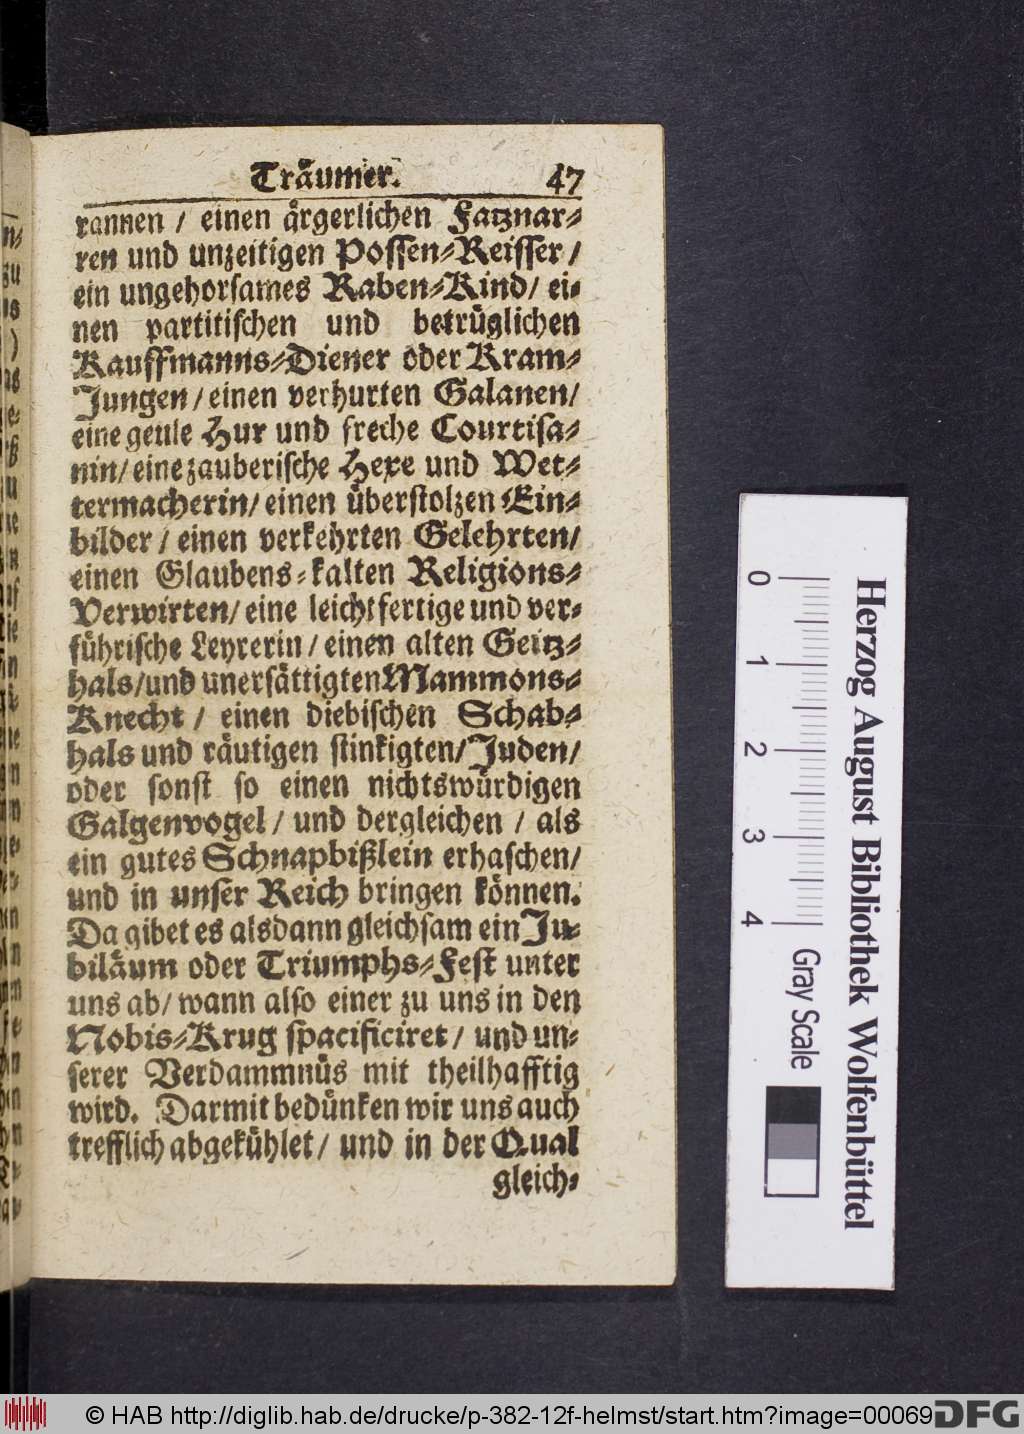 Träumer. 47
rannen / einen ärgerlichen Fatznar-
ren und unzeitigen Possen-Reisser /
ein ungehorsames Raben-Kind/ ei-
nen partitischen und betrüglichen
Kauffmanns-Diener oder Kram-
Jungen / einen verhurten Galanen/
eine geule Hur und freche Courtisa-
nin/ eine zauberische Hexe und Wet-
termacherin/ einen überstolzen Ein-
bilder / einen verkehrten Gelehrten/
einen Glaubens-kalten Religions-
Verwirten/ eine leichtfertige und ver-
führische Leyrerin / einen alten Geitz-
hals/und unersättigten Mammons-
Knecht / einen diebischen Schab-
hals und räutigen stinkigten/Juden/
oder sonst so einen nichtswürdigen
Galgenvogel / und dergleichen / als
ein gutes Schnapbißlein erhaschen/
und in unser Reich bringen können.
Da gibet es alsdann gleichsam ein Ju-
biläum oder Triumphs-Fest unter
uns ab/ wann also einer zu uns in den
Nobis-Krug spacificiret / und un-
serer Verdammnüs mit theilhafftig
wird. Darmit bedünken wir uns auch
trefflich abgekühlet / und in der Qual
gleich-
0 1 2 3 4
Gray Scale
Herzog August Bibliothek Wolfenbüttel
© HAB http://diglib.hab.de/drucke/p-382-12f-helmst/start.htm?image=00069
DFG